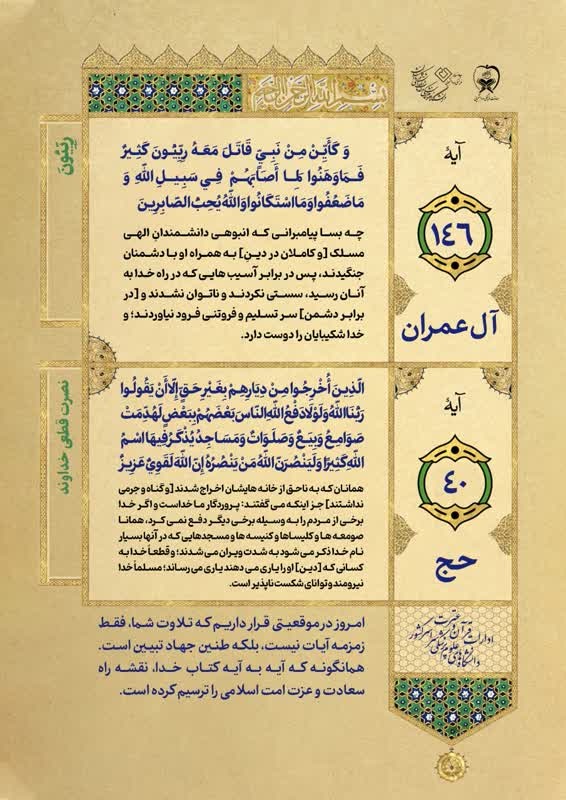 بسم الله الرحمن الرحیم
آیهٔ
۱۴۶
آل عمران
رِبِّيّونَ
وَ كَأَيِّنْ مِنْ نَبِيٍّ قَاتَلَ مَعَهُ رِبِّيُّونَ كَثِيرٌ
فَمَا وَهَنُوا لِمَا أَصَابَهُمْ فِي سَبِيلِ اللَّهِ وَ
مَا ضَعُفُوا وَمَا اسْتَكَانُوا وَاللَّهُ يُحِبُّ الصَّابِرِينَ
چه بسا پیامبرانی که انبوهی دانشمندانِ الهی
مسلک [و کاملان در دین] به همراه او با دشمنان
جنگیدند، پس در برابر آسیب هایی که در راه خدا به
آنان رسید، سستی نکردند و ناتوان نشدند و [در
برابر دشمن] سر تسلیم و فروتنی فرود نیاوردند؛ و
خدا شکیبایان را دوست دارد.
آیهٔ
۴۰
حج
نصرت قطعی خداوند
الَّذِينَ أُخْرِجُوا مِنْ دِيَارِهِمْ بِغَيْرِ حَقٍّ إِلَّا أَنْ يَقُولُوا
رَبُّنَا اللَّهُ وَلَوْلَا دَفْعُ اللَّهِ النَّاسَ بَعْضَهُمْ بِبَعْضٍ لَهُدِّمَتْ
صَوَامِعُ وَبِيَعٌ وَصَلَوَاتٌ وَمَسَاجِدُ يُذْكَرُ فِيهَا اسْمُ
اللَّهِ كَثِيرًا وَلَيَنْصُرَنَّ اللَّهُ مَنْ يَنْصُرُهُ إِنَّ اللَّهَ لَقَوِيٌّ عَزِيزٌ
همانان که به ناحق از خانه هایشان اخراج شدند [و گناه و جرمی
نداشتند] جز اینکه می گفتند: پروردگار ما خداست و اگر خدا
برخی از مردم را به وسیله برخی دیگر دفع نمی کرد، همانا
صومعه ها و کلیساها و کنیسه ها و مسجدهایی که در آنها بسیار
نام خدا ذکر می شود به شدت ویران می شدند؛ و قطعاً خدا به
کسانی که [دین] او را یاری می دهند یاری می رساند؛ مسلماً خدا
نیرومند و توانای شکست ناپذیر است.
ادارات قرآن و عترت
دانشگاه های علوم پزشکی سراسر کشور
امروز در موقعیتی قرار داریم که تلاوت شما، فقط
زمزمه آیات نیست، بلکه طنین جهاد تبیین است.
همانگونه که آیه به آیه کتاب خدا، نقشه راه
سعادت و عزت امت اسلامی را ترسیم کرده است.